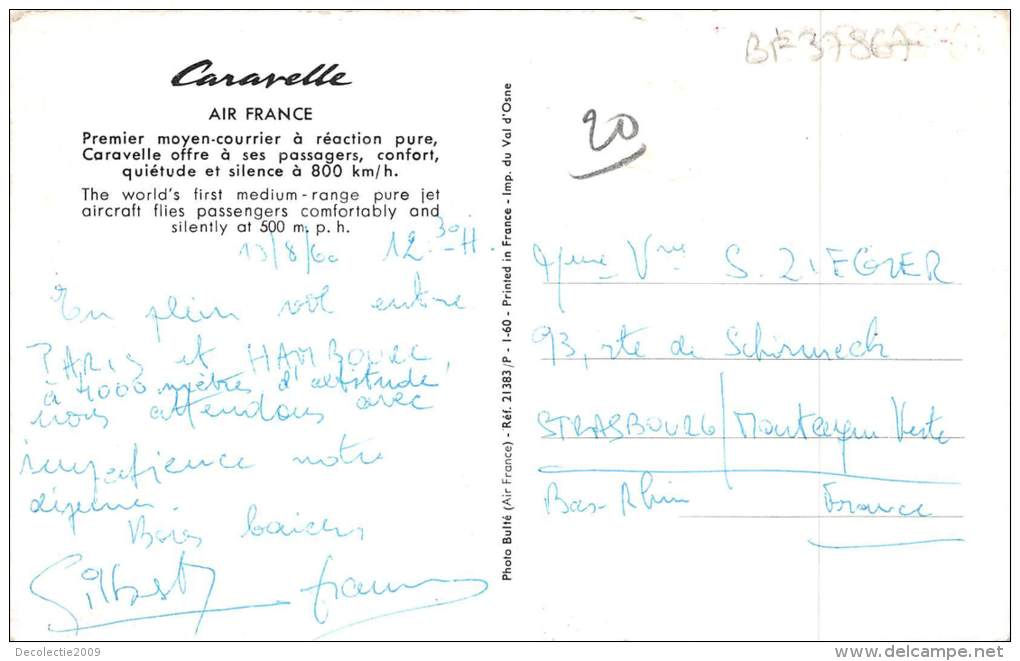 BF 37867
Caravelle
AIR FRANCE
Premier moyen-courrier à réaction pure,
Caravelle offre à ses passagers, confort,
quiétude et silence à 800 km/h.
The world's first medium-range pure jet
aircraft flies passengers comfortably and
silently at 500 m. p. h.
13/8/60 12.30H.
En plein vol entre
PARIS et HAMBOURG,
à 4000 mètres d'altitude,
nous attendons avec
impatience notre
déjeuner.
Bons baisers
Gilbert
Photo Bulté (Air France) - Réf. 21383/P - I-60 - Printed in France - Imp. du Val d'Osne
20
Mme Vve S. ZIEGLER
93, rte de Schirmeck
STRASBOURG / Montagne Verte
Bas-Rhin France
Decolectie2009
delcampe.net